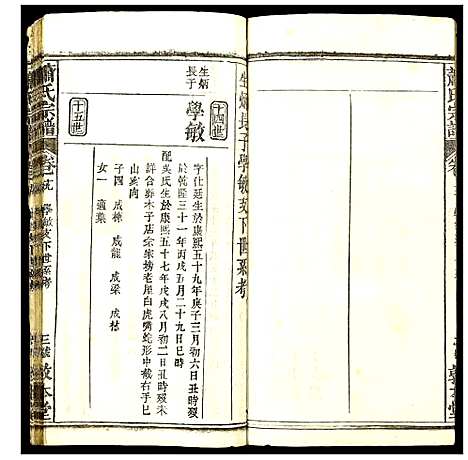 蕭氏宗譜
生炳長子學敏支下世系考
十四世
生炳
長子
學敏
字仕廷生於康熙五十九年庚子三月初六日丑時歿
於乾隆三十一年丙戌五月二十九日巳時
配吳氏生於康熙五十七年戊戌八月初二日丑時歿未
詳合葬木子店宗榜老屋白虎嘴蛇形中嶘右手巳
山亥向
子四 成棟 成龍 成梁 成
女一 適葉
十五世
蕭氏宗譜
學敏支下世系考
敦本堂